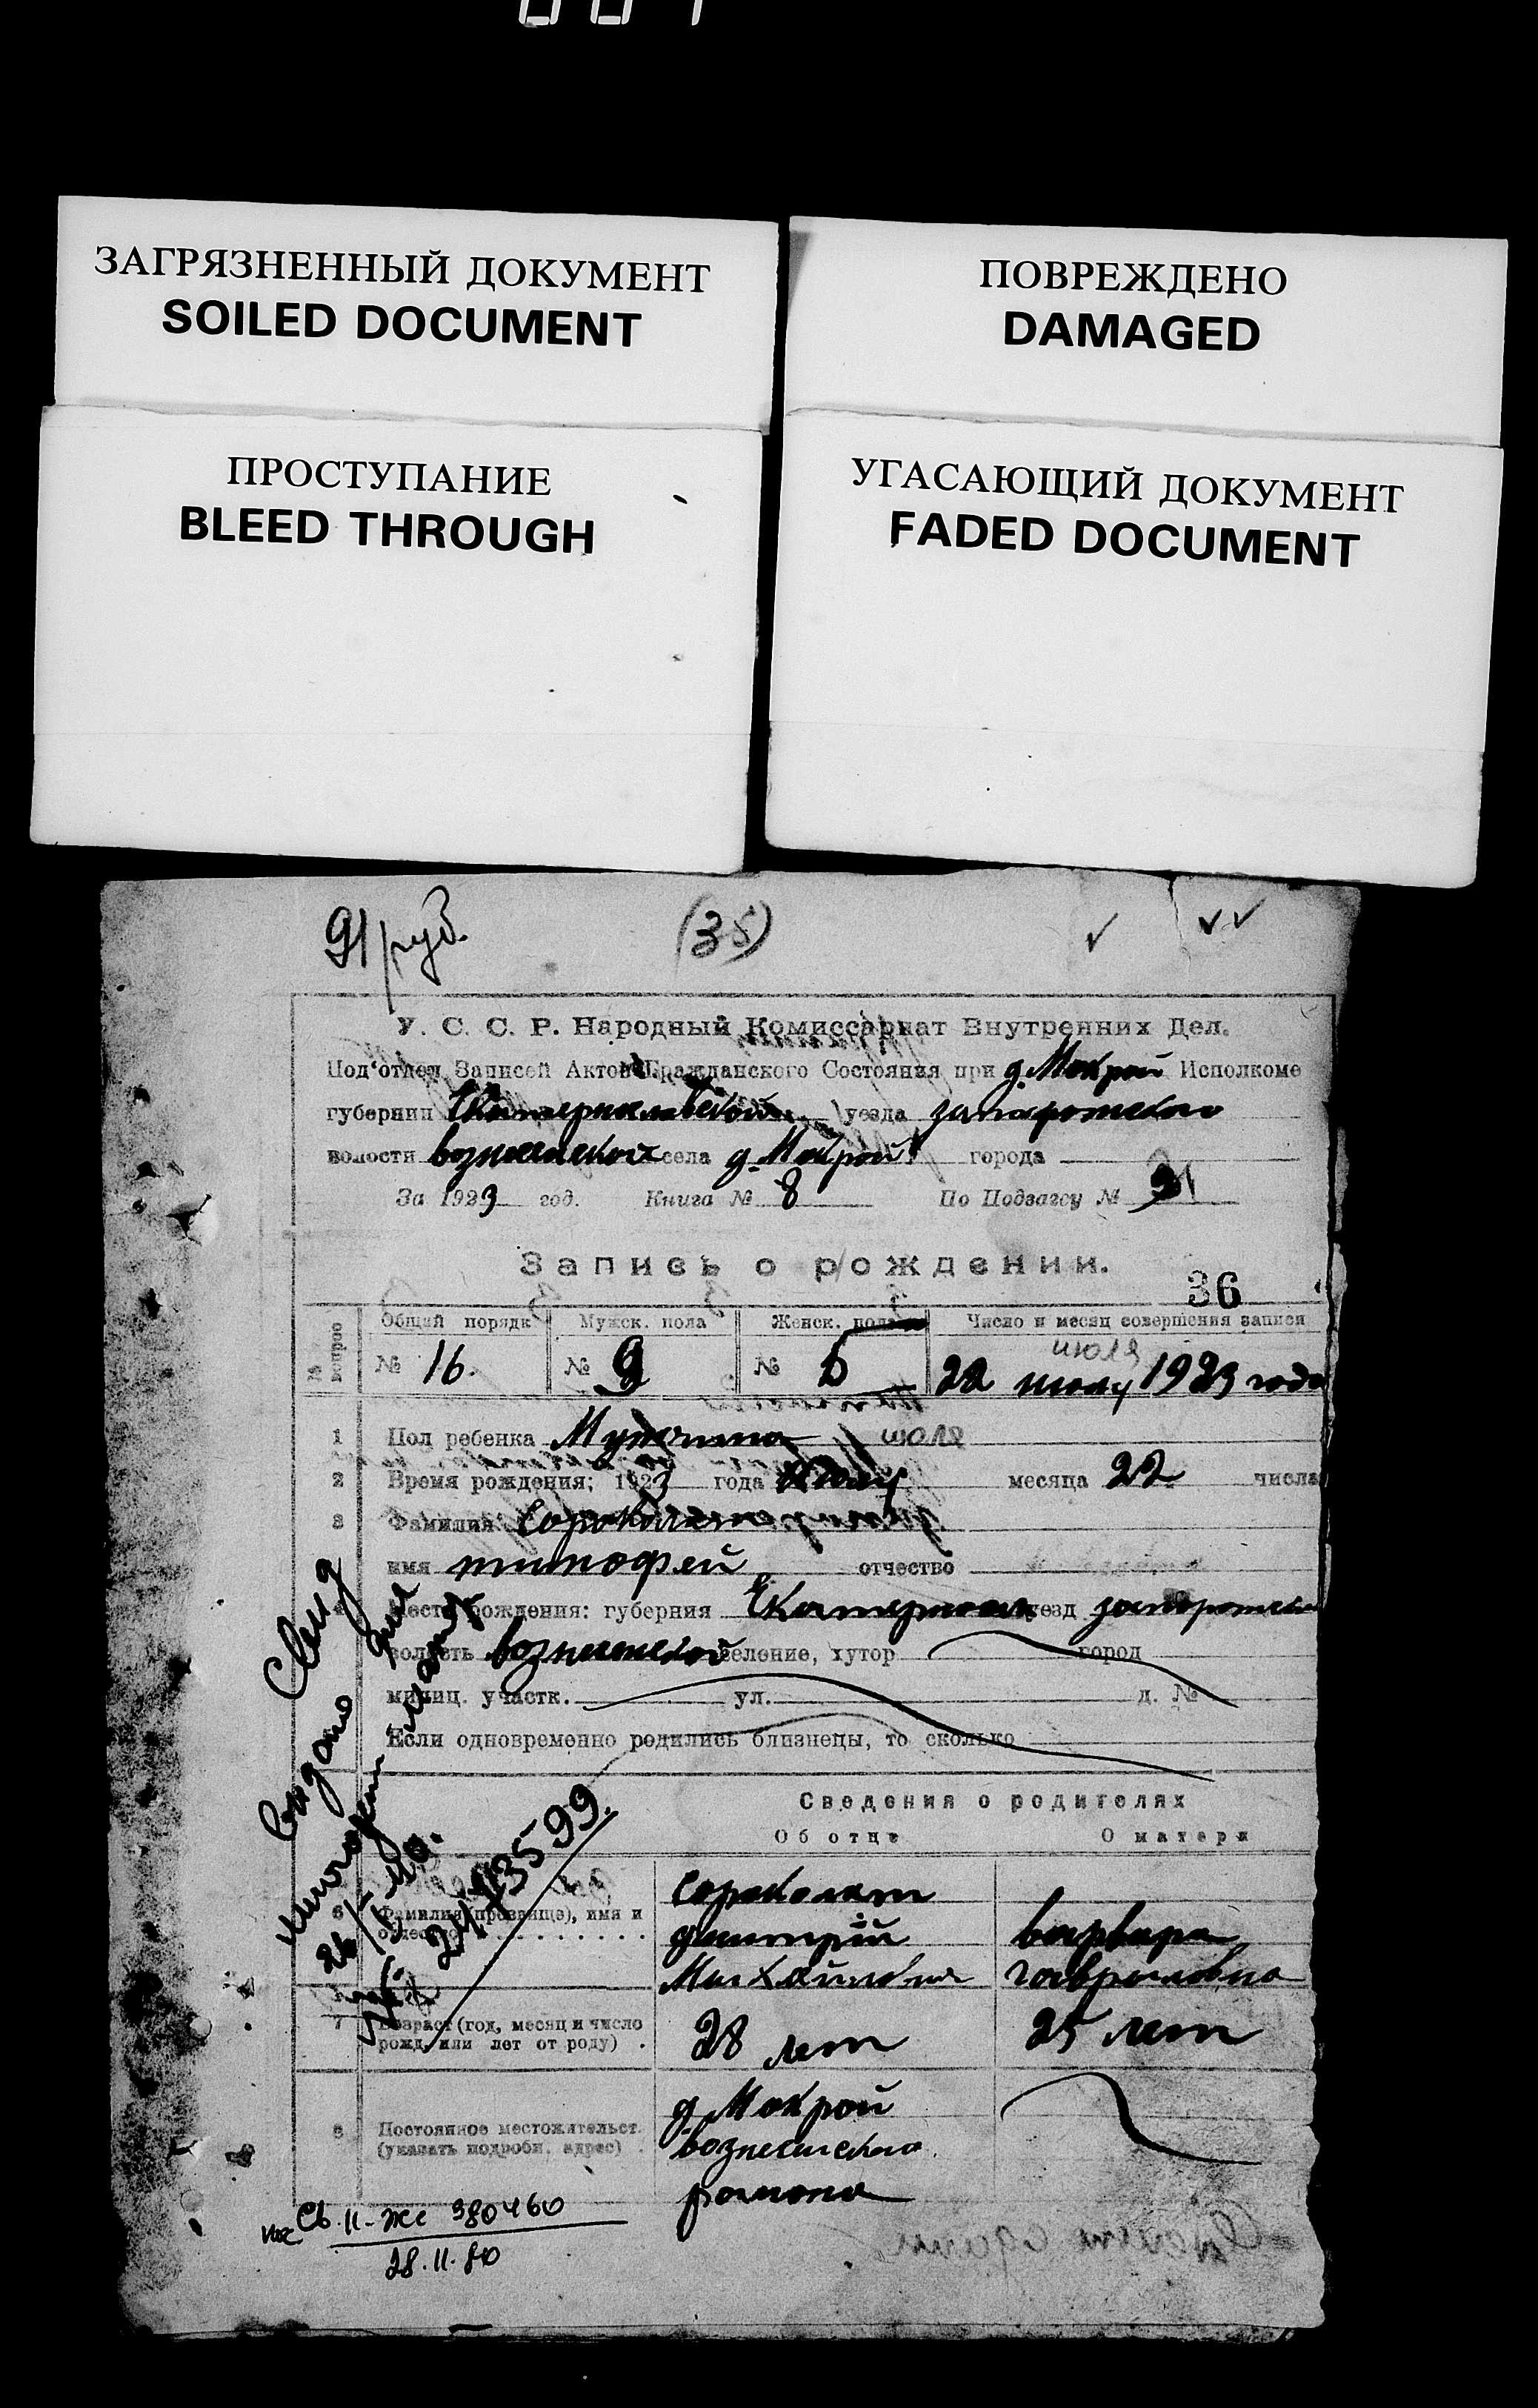 ЗАГРЯЗНЕННЫЙ ДОКУМЕНТ
SOILED DOCUMENT
ПОВРЕЖДЕНО
DAMAGED
ПРОСТУПАНИЕ
BLEED THROUGH
УГАСАЮЩИЙ ДОКУМЕНТ
FADED DOCUMENT
91 руб.
(35)
У. С. С. Р. Народный Комиссариат Внутренних Дел.
Под'отдел Записей Актов Гражданского Состояния при д. Мокрой Исполкоме
губернии Екатеринославской уезда запорожского
волости вознесенской села д. Мокрой города
За 1923 год. Книга № 8 По Подзагсу №
Запись о рождении.
36
№ вопрос
Общий порядк Мужск. пола Женск. пола Число и месяц совершения записи
июля
№ 16. № 9 № 5 22 июлу 1923 года
1 Пол ребенка Мужчина июля
2 Время рождения; 1923 года июлу месяца 22 числа
3 Фамилия Сороколат
имя тимофей отчество
Место рождения: губерния Екатеринослав уезд
волость вознесенской селение, хутор город
милиц. участк. ул. д. №
Если одновременно родились близнецы, то сколько
Выдано Свид
Сведения о родителях
Об отце О матери
6 Фамилия (прозвище), имя и отчество
Сороколат
димитрий варвара
Михайлович гавриловна
7 Возраст (год, месяц и число рожд. или лет от роду) .
28 лет 25 лет
8 Постоянное местожительст. (указать подробн. адрес) .
д. Мокрой
вознесенского
района
Св. II-ЖС 380460
28.11.80